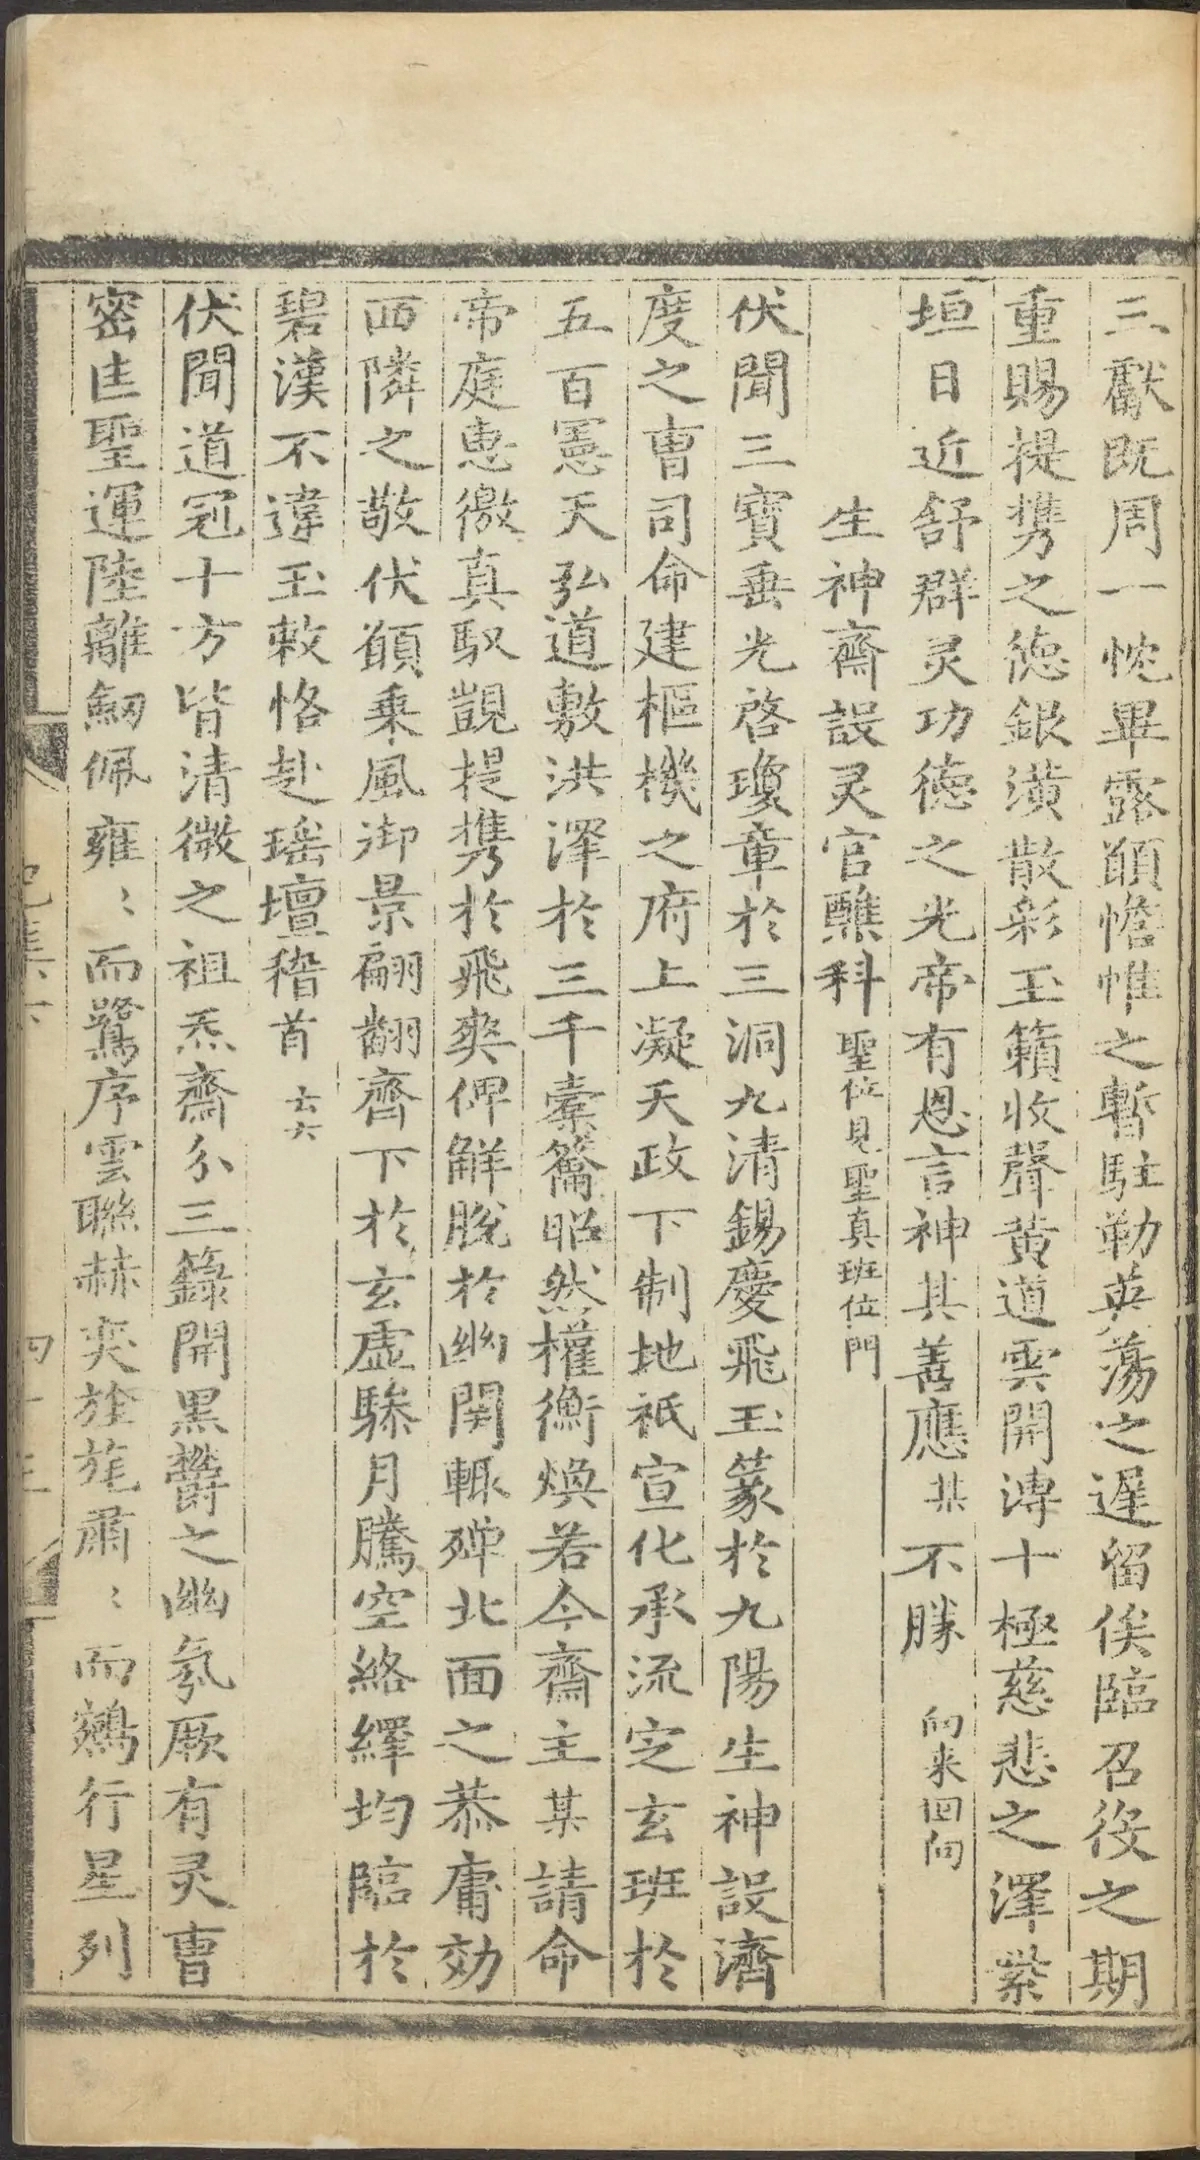 三獻既周一忱畢露願幨帷之暫駐勒英蕩之遲留俟臨召役之期
重賜提携之德銀潢散彩玉籟收聲黄道雲開溥十極慈悲之澤紫
垣日近舒群灵功德之光帝有恩言神其善應某不勝 向来囬向
生神齋設灵官醮科聖位見聖真班位門
伏聞三寶垂光啓瓊章於三洞九清錫慶飛玉篆於九陽生神設濟
度之曺司命建樞機之府上凝天政下制地祇宣化承流定玄班於
五百冪天弘道敷洪澤於三千橐籥昭然權衡煥若今齋主某請命
帝庭惠徼真馭覬提携於飛爽俾解脫於幽関輙殫北面之恭庸効
西隣之敬伏願乗風御景翩翻齊下於玄虛驂月騰空絡繹均臨於
碧漢不違玉敕恪赴瑶壇稽首 云云
伏聞道冠十方皆清微之祖炁齋分三籙開黒欝之幽氛厥有灵曺
密匡聖運陸離劒佩雍〻而鷺序雲聯赫奕旌旄肅〻而鵷行星列